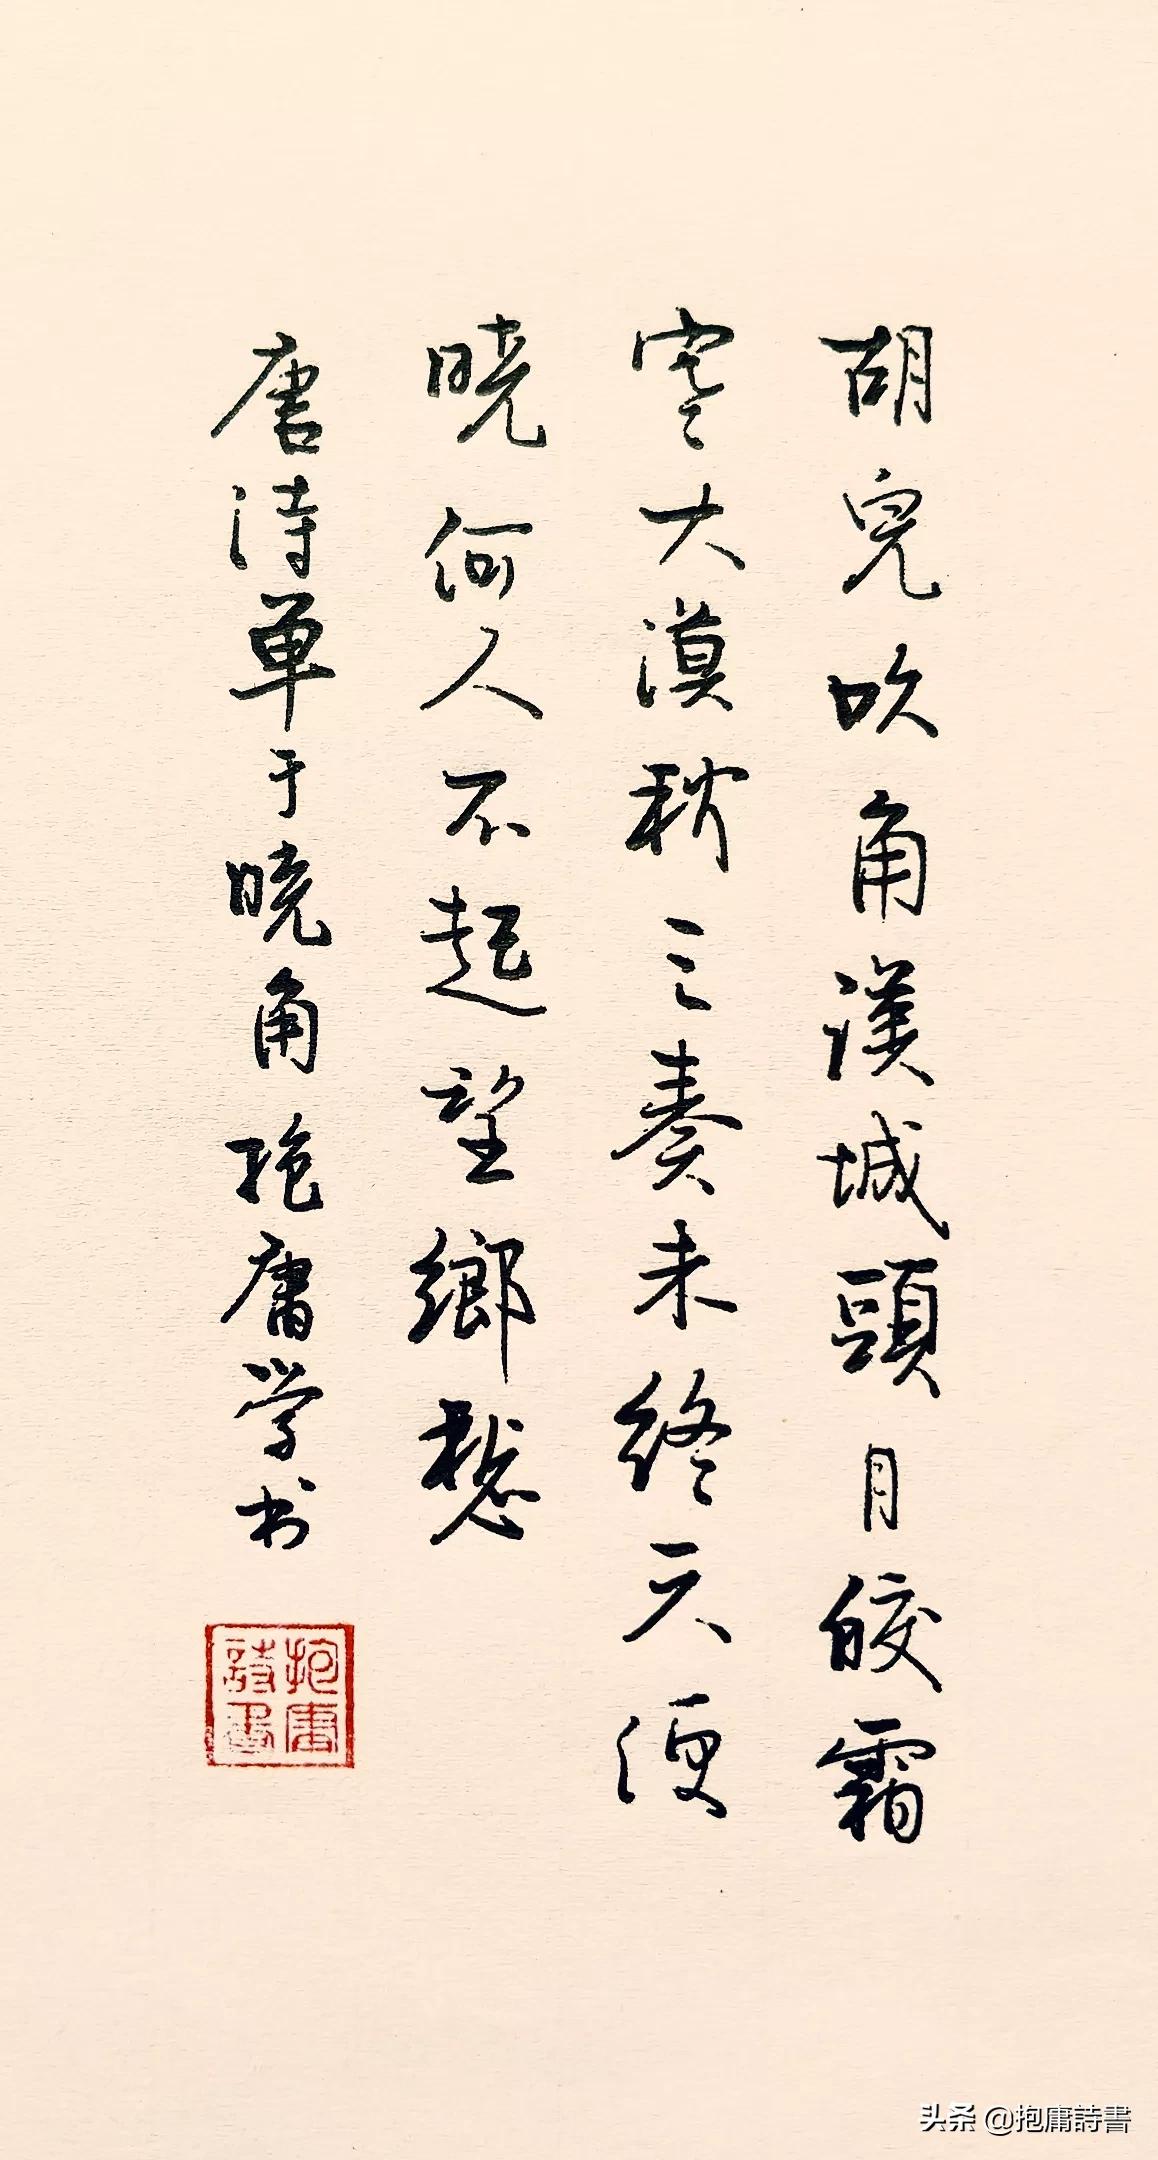 胡兒吹角漢城頭月皎霜
寒大漠秋三奏未終天便
曉何人不起望鄉愁
唐诗单于晓角抱庸学书
抱庸
詩書
头条 @抱庸詩書